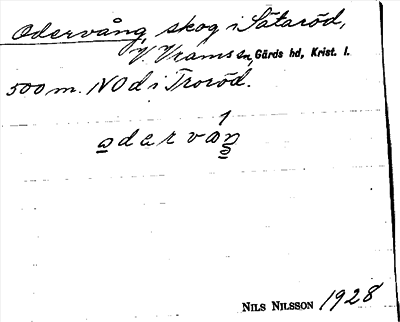 Odervång, skog i Sätaröd,
V. Vrams sn, Gärds hd, Krist. l.
500 m. NO d i Troröd.
1
odervaŋ
NILS NILSSON 1928